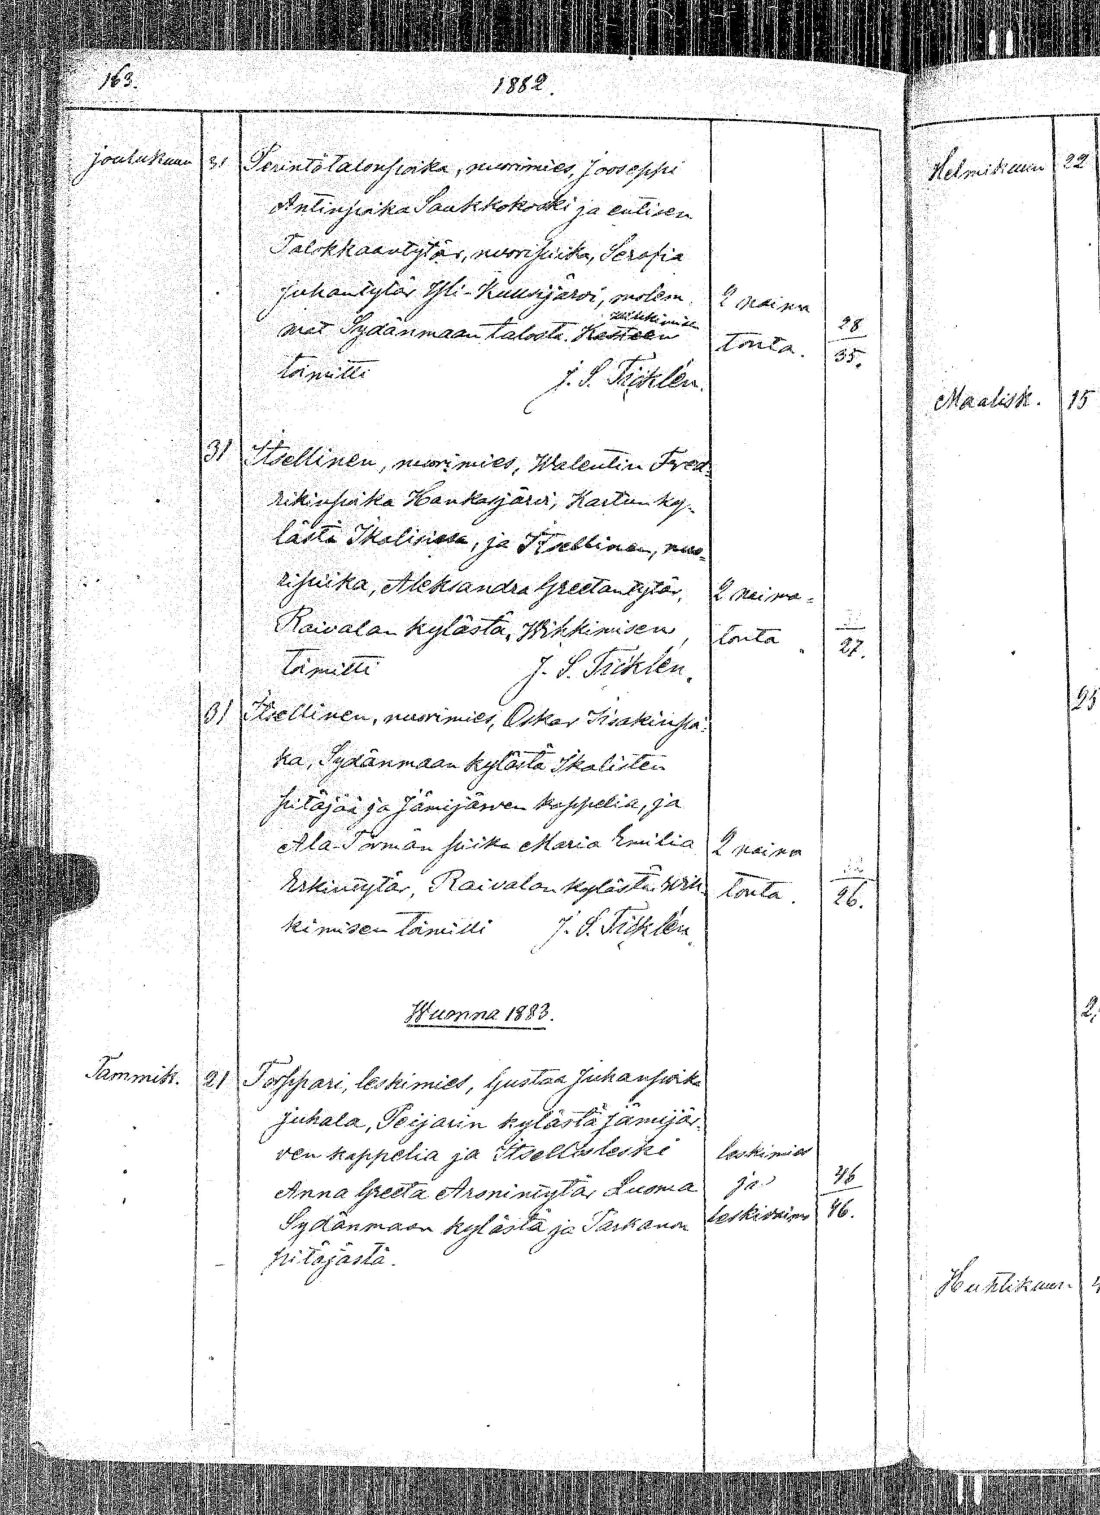 163.
1882.
joulukuun 31 Perintötalonpoika, nuorimies, Jooseppi
Antinpoika Saukkokoski ja entisen
Talokkaantytär, nuoripiika, Serafia
Juhantytär Yli-Kuusijärvi, molem
mat Sydänmaan talosta. Kasteen
wihkimisen
toimitti J. S. Ticklén.
2 naima
tonta.
28
35.
31 Itsellinen, nuorimies, Walentin Fred-
rikinpoika Hankasjärvi, Kartun ky-
lästä Ikalisissa, ja Itsellinen, nuo-
ripiika, Aleksandra Greetantytär,
Raivalan kylästä. Wihkimisen,
toimitti J. S. Ticklén.
2 naima-
tonta.
27.
31 Itsellinen, nuorimies, Oskar Iisakinpoi-
ka, Sydänmaan kylästä Ikalisten
pitäjää ja Jämijärven kappelia, ja
Ala-Törmän piika Maria Emilia
Erkintytär, Raivalan kylästä. Wih-
kimisen toimitti J. S. Ticklén.
2 naima
tonta.
26.
Wuonna 1883.
Tammik. 21 Torppari, leskimies, Gustaa Juhanpoika
Juhala, Peijarin kylästä Jämijär-
ven kappelia ja Itsellisleski
Anna Greeta Aronintytär Luoma
Sydänmaan kylästä ja Parkanon
pitäjästä.
leskimies
ja
leskivaimo
46
46.
Helmikuun 22
Maalisk. 15
25
2
Huhtikuun 4